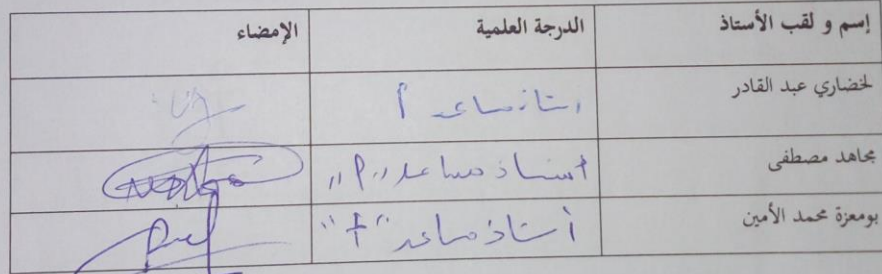 إسم و لقب الأستاذ الدرجة العلمية الإمضاء
لخضاري عبد القادر استاذ مساعد أ
مجاهد مصطفى استاذ مساعد "أ"
بومعزة محمد الأمين أستاذ مساعد "أ"